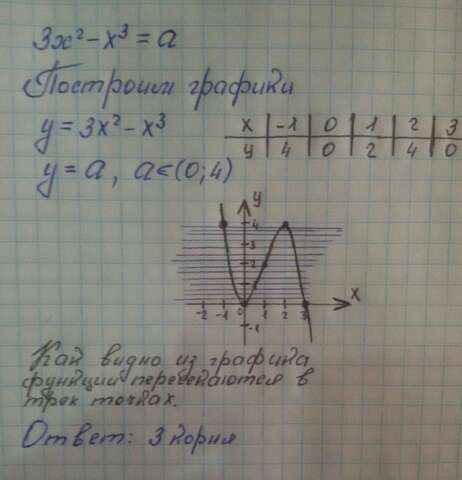 3x² - x³ = a
Построим графики
y = 3x² - x³
y = a, a∈(0; 4)
x | -1 | 0 | 1 | 2 | 3
y | 4 | 0 | 2 | 4 | 0
y
4
3
2
1
-2 -1 0 1 2 3 x
-1
Как видно из графика
функции пересекаются в
трех точках.
Ответ: 3 корня